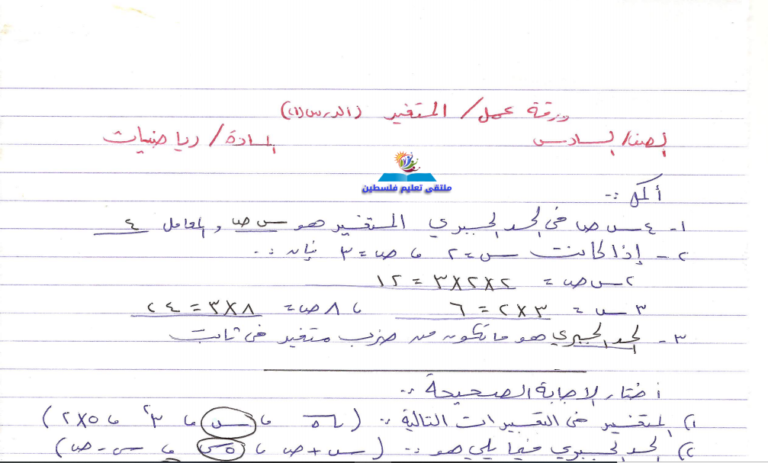 ورقة عمل / المتغير (الدرس(١))
الصف/ السادس المادة/ رياضيات
ملتقى تعليم فلسطين
أكمل :-
١- ٤ س ص في الحد الجبري المتغير هو س ص والمعامل ٤
٢- إذا كانت س = ٢ ، ص = ٣ فإن :-
٢ س ص = ٢×٢×٣ = ١٢
٣ س = ٣×٢ = ٦ ، ٨ ص = ٨×٣ = ٢٤
٣- الحد الجبري هو ما تكون من ضرب متغير في ثابت
اختار الإجابة الصحيحة :-
١) المتغير في التعبيرات التالية :- ( ، س ، ٣² ، ٥×٢ )
٢) الحد الجبري فيما يلي هو :- ( س + ص ، ٥س ، س - ص )